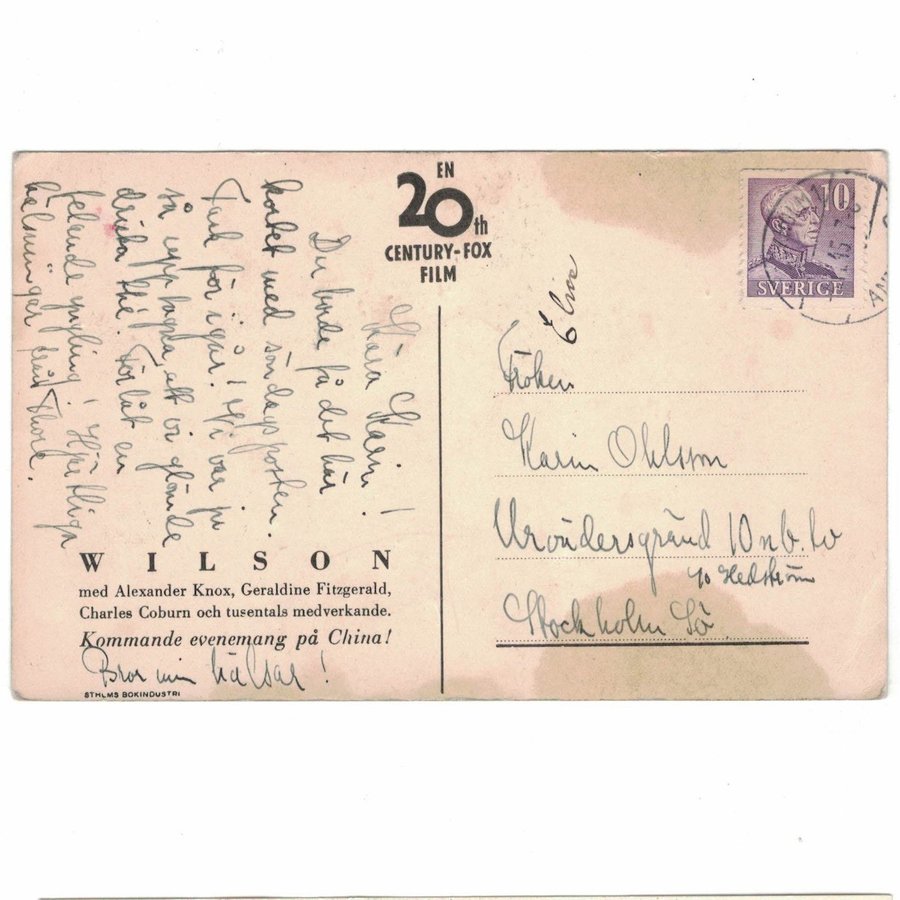 EN
20th
CENTURY-FOX
FILM
10
SVERIGE
Kära Karin!
Du borde få det här
kortet med söndagsposten.
Tack för igår! Vi var ju
så upptagna att vi glömde
dricka thé. Förlåt en
felande yngling! Hjärtliga
hälsningar från Thore.
WILSON
med Alexander Knox, Geraldine Fitzgerald,
Charles Coburn och tusentals medverkande.
Kommande evenemang på China!
Bror min hälsar!
STHLMS BOKINDUSTRI
Fröken
Karin Ohlsson
10 nb. tv
c/o Hedström
Stockholm Sö